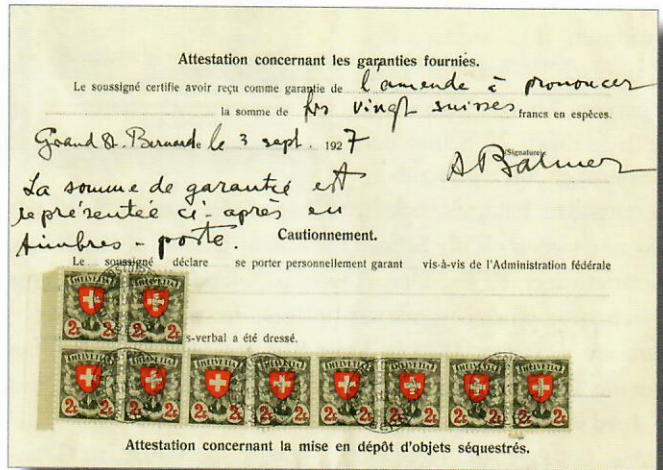 Attestation concernant les garanties fournies.
Le soussigné certifie avoir reçu comme garantie de l'amende à prononcer
la somme de frs vingt suisses francs en espèces.
Grand St. Bernard le 3 sept. 1927
(Signature)
A Balmer
La somme de garantie est
représentée ci-après en
timbres-poste.
Cautionnement.
Le soussigné déclare se porter personnellement garant vis-à-vis de l'Administration fédérale
HELVETIA HELVETIA
2F 2F
s-verbal a été dressé.
HELVETIA HELVETIA HELVETIA HELVETIA HELVETIA HELVETIA HELVETIA HELVETIA
2F 2F 2F 2F 2F 2F 2F 2F
Attestation concernant la mise en dépôt d'objets séquestrés.